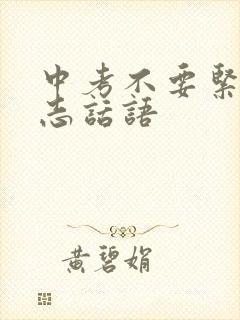 中考不要緊
志話語
黃碧娟